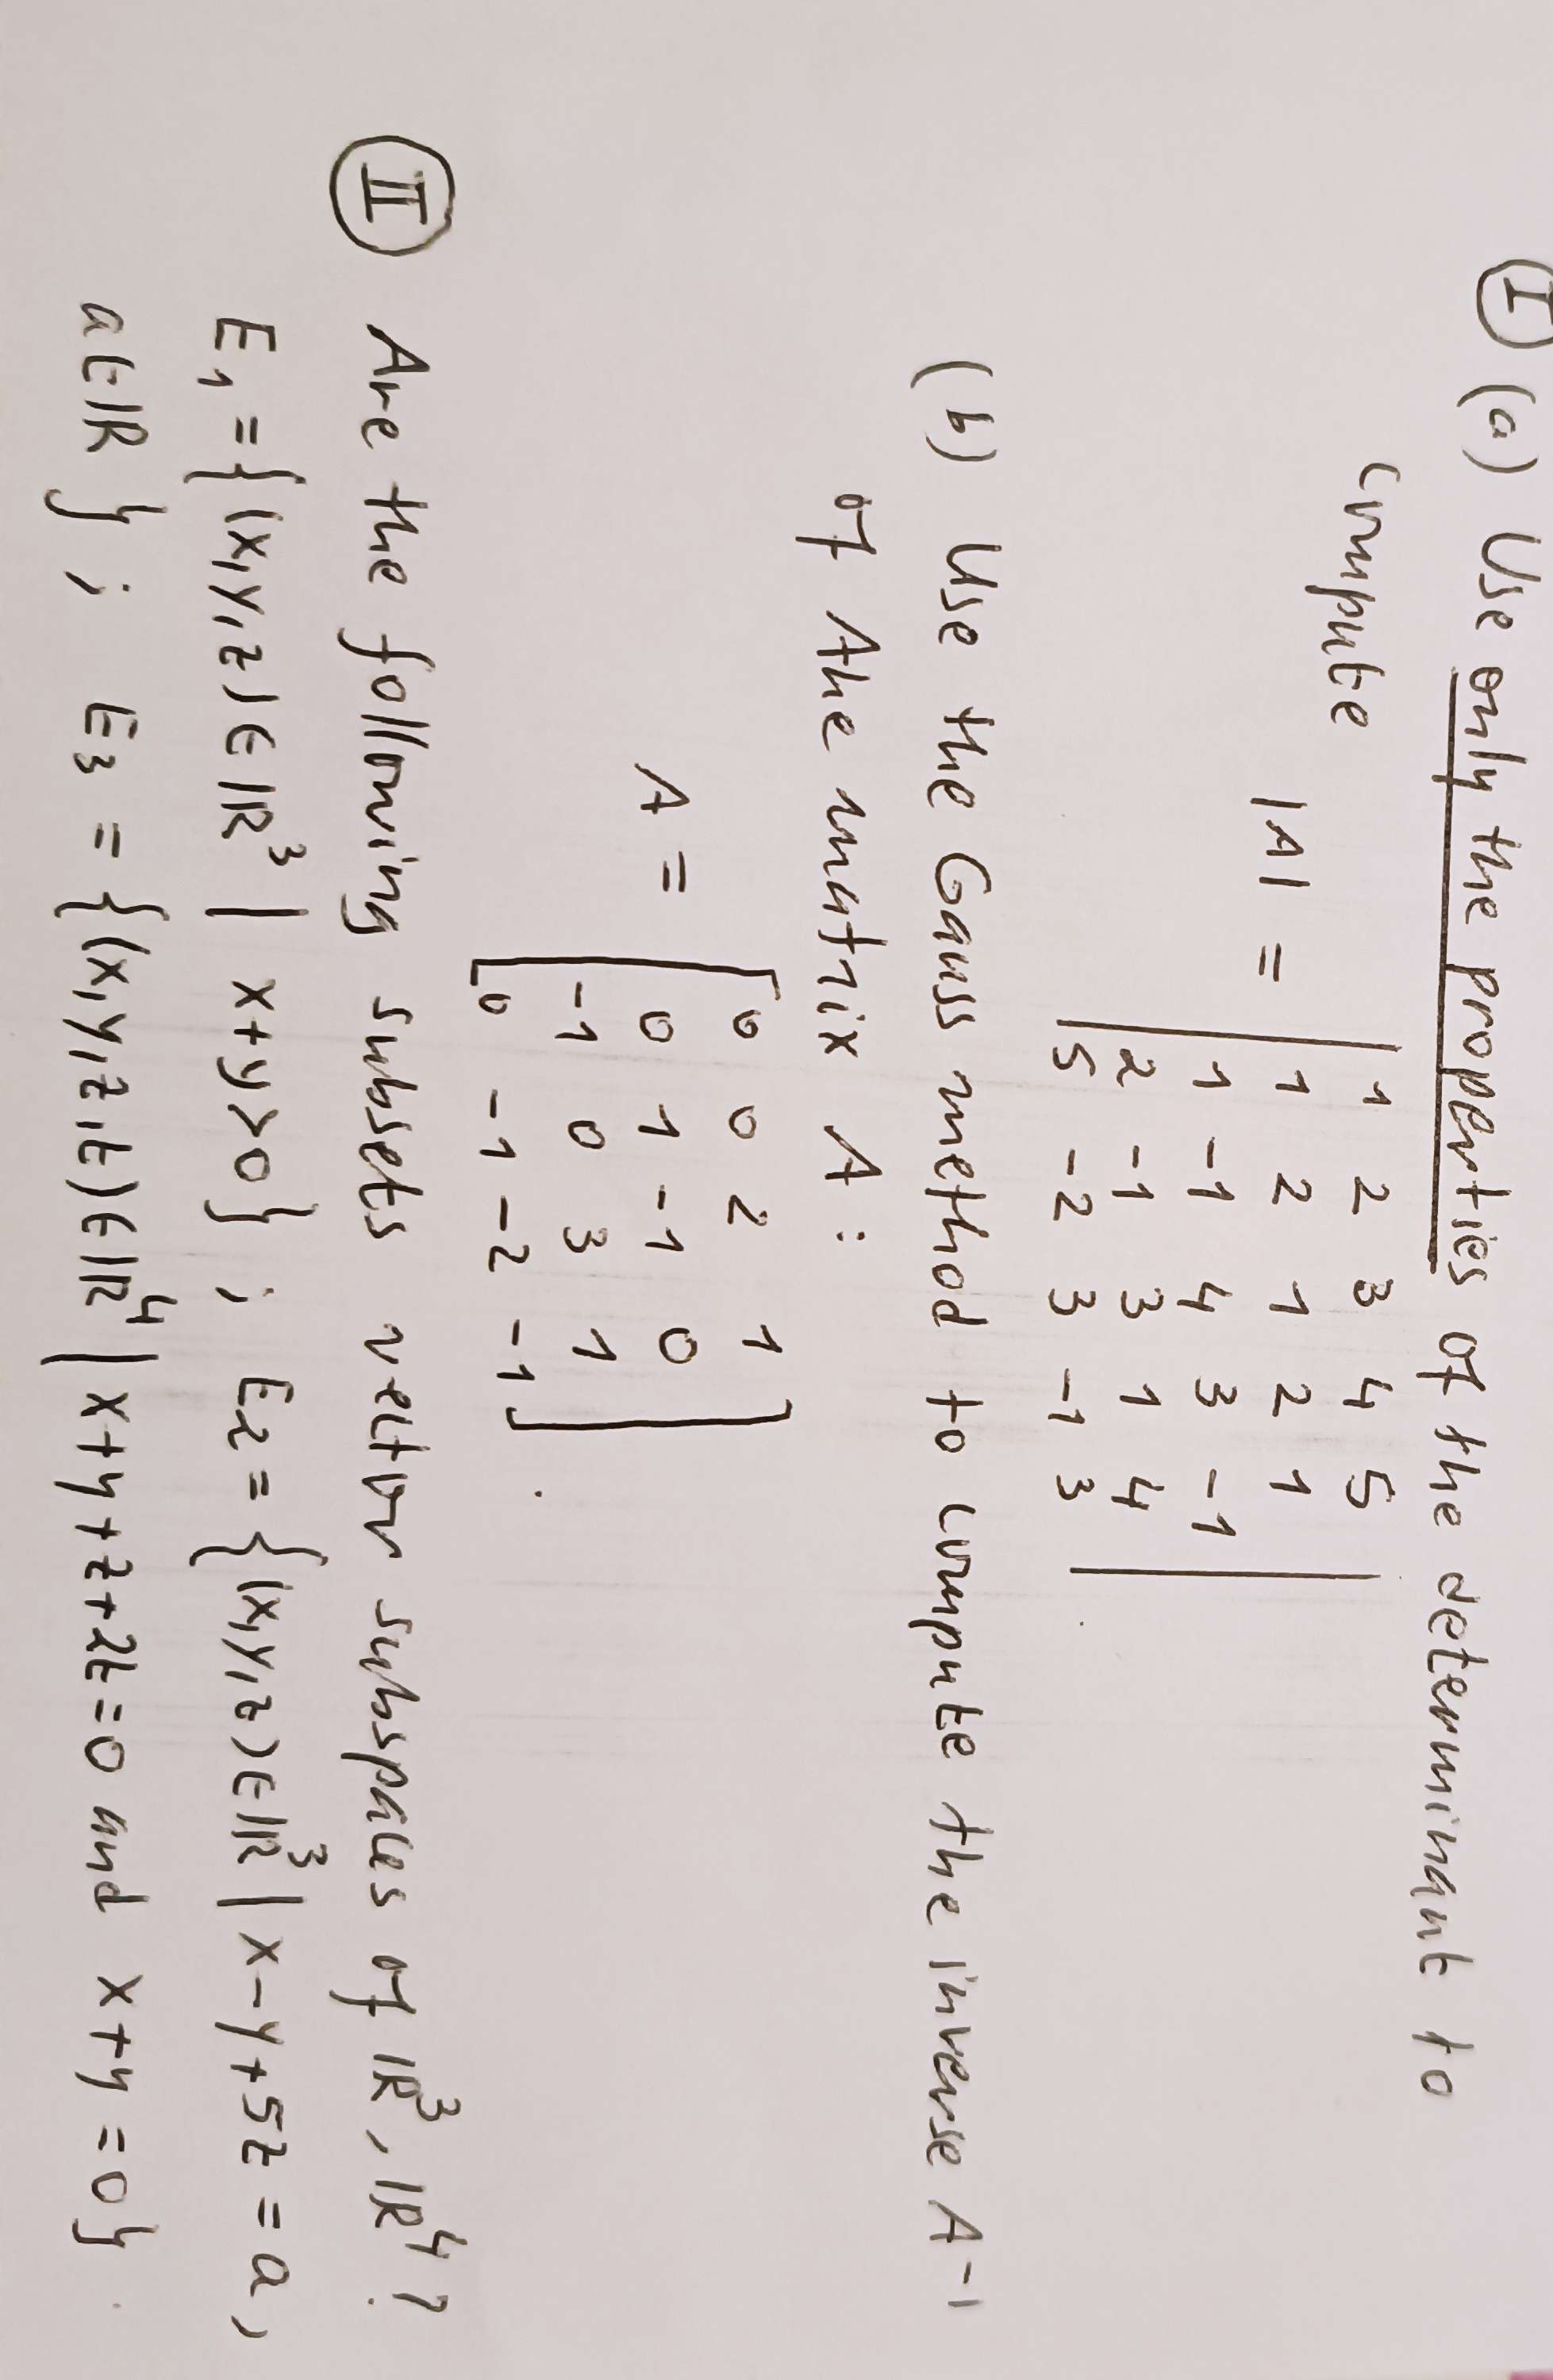 Ⓘ (a) Use only the properties of the determinant to
compute
|A| =
1 2 3 4 5
1 2 1 2 1
1 -1 4 3 -1
2 -1 3 1 4
5 -2 3 -1 3
.
(b) Use the Gauss method to compute the inverse A-1
of the matrix A:
A =
0 0 2 1
0 1 -1 0
-1 0 3 1
0 -1 -2 -1
.
Ⅱ Are the following subsets vector subspaces of ℝ³, ℝ⁴?
E₁ = {(x,y,z) ∈ ℝ³ | x+y>0} ; E₂ = {(x,y,z) ∈ ℝ³ | x-y+5z = a,
a ∈ ℝ } ; E₃ = {(x,y,z,t) ∈ ℝ⁴ | x+y+z+2t=0 and x+y=0} .